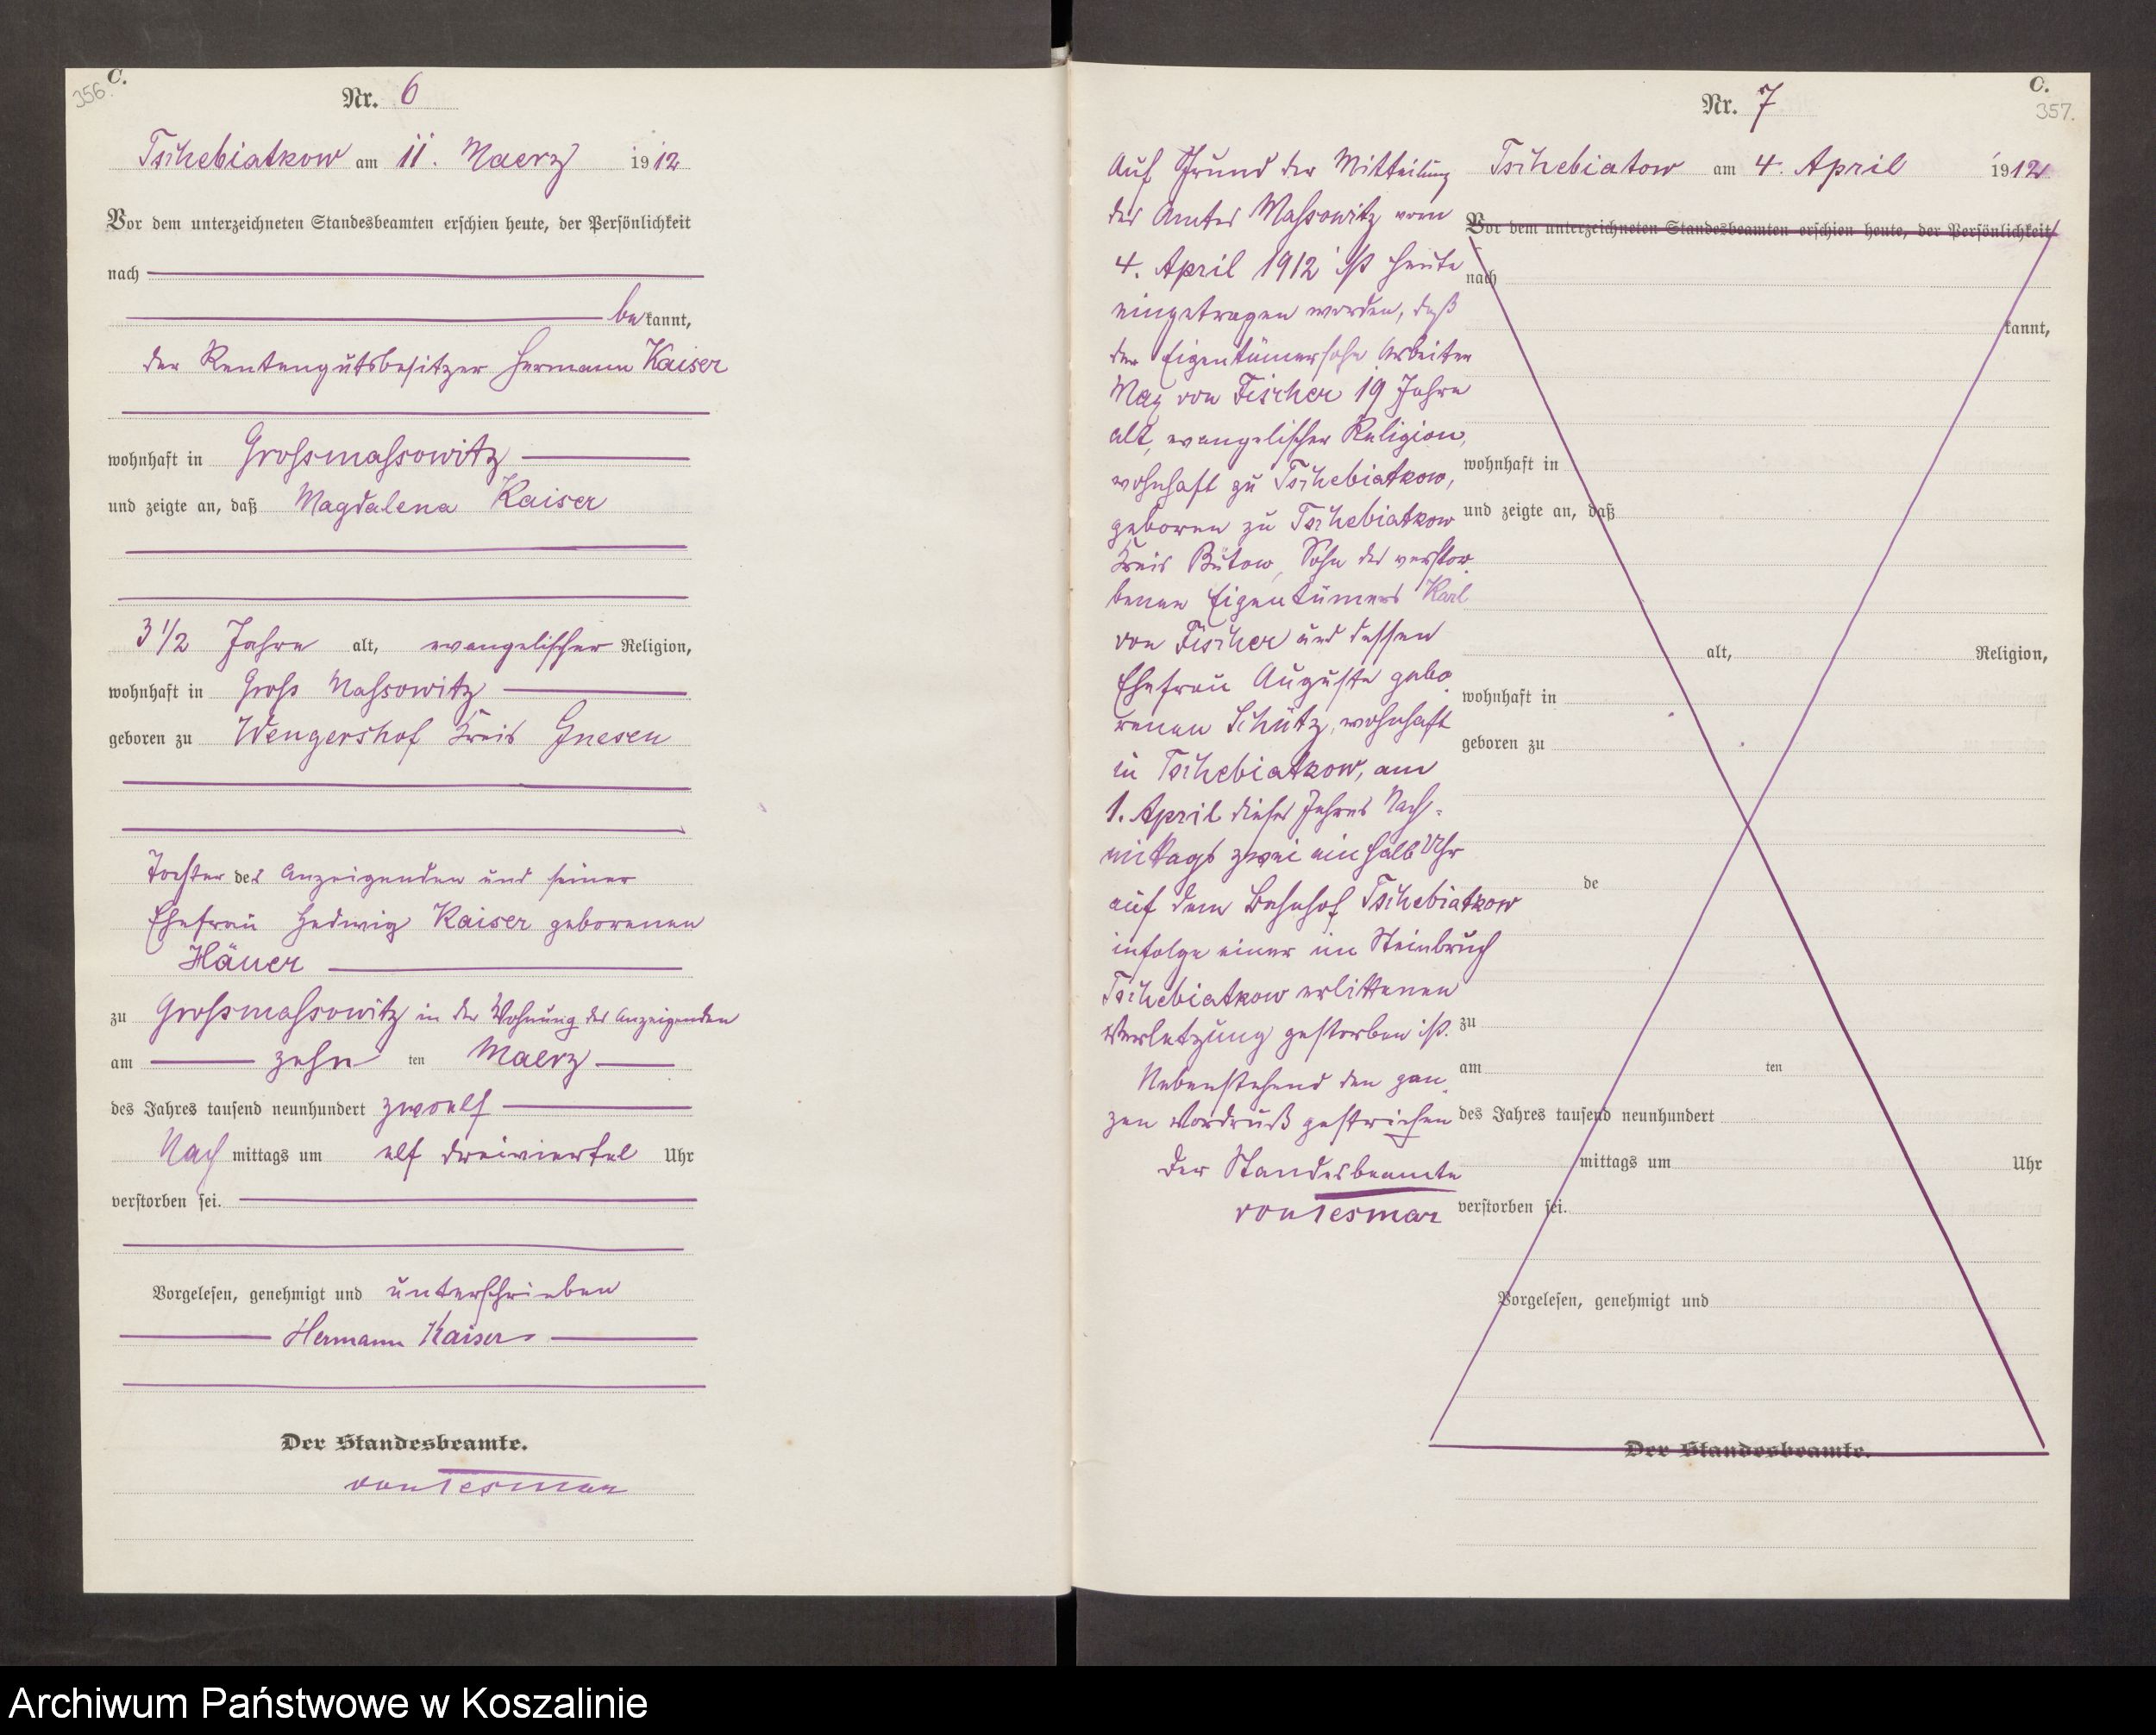 C.
356.
Nr. 6
Tschebiatkow am 11. Maerz 1912
Vor dem unterzeichneten Standesbeamten erschien heute, der Persönlichkeit
nach
bekannt,
der Rentengutsbesitzer Hermann Kaiser
wohnhaft in Grossmassowitz
und zeigte an, daß Magdalena Kaiser
3 1/2 Jahre alt, evangelischer Religion,
wohnhaft in Gross Massowitz
geboren zu Wengershof Kreis Gnesen
Tochter des Anzeigenden und seiner
Ehefrau Hedwig Kaiser geborenen
Häuer
zu Grossmassowitz in der Wohnung des Anzeigenden
am zehn ten Maerz
des Jahres tausend neunhundert zwoelf
Nach mittags um elf dreiviertel Uhr
verstorben sei.
Vorgelesen, genehmigt und unterschrieben
Hermann Kaiser
Der Standesbeamte.
von Tesmar
C.
357.
Nr. 7
Tschebiatow am 4. April 1912
Auf Grund der Mitteilung
des Amtes Massowitz vom
4. April 1912 ist heute
eingetragen worden, daß
der Eigentümersohn Arbeiter
Max von Fischer 19 Jahre
alt, evangelischer Religion,
wohnhaft zu Tschebiatkow,
geboren zu Tschebiatkow
Kreis Bütow, Sohn des verstor
benen Eigentümers Karl
von Fischer und dessen
Ehefrau Auguste gebo
renen Schütz, wohnhaft
in Tschebiatkow, am
1. April dieses Jahres Nach-
mittags zwei einhalb Uhr
auf dem Bahnhof Tschebiatkow
infolge einer im Steinbruch
Tschebiatkow erlittenen
Verletzung gestorben ist.
Nebenstehend den gan
zen Vordruck gestrichen
Der Standesbeamte
von Tesmar
Vor dem unterzeichneten Standesbeamten erschien heute, der Persönlichkeit
nach
kannt,
wohnhaft in
und zeigte an, daß
alt, Religion,
wohnhaft in
geboren zu
de
zu
am ten
des Jahres tausend neunhundert
mittags um Uhr
verstorben sei.
Vorgelesen, genehmigt und
Der Standesbeamte.
Archiwum Państwowe w Koszalinie